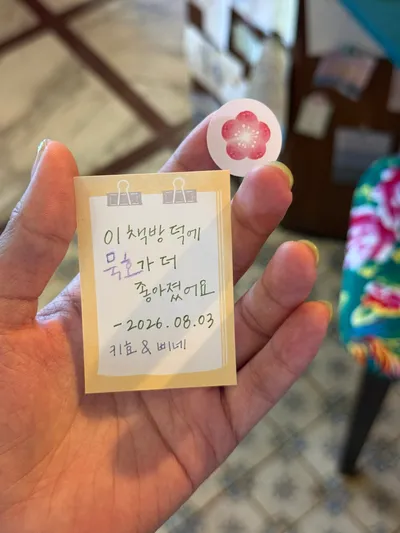 이 책방 덕에
묵호가 더
좋아졌어요
- 2026.08.03
키효 & 삐네